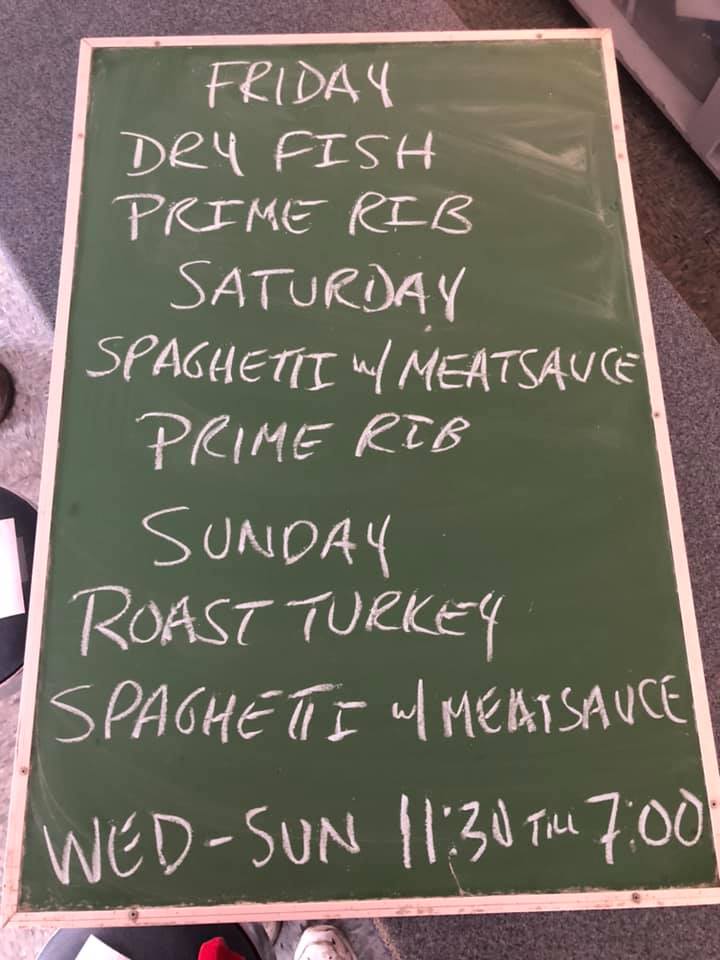 FRIDAY
DRY FISH
PRIME RIB
SATURDAY
SPAGHETTI w/ MEATSAUCE
PRIME RIB
SUNDAY
ROAST TURKEY
SPAGHETTI w/ MEATSAUCE
WED-SUN 11:30 TILL 7:00